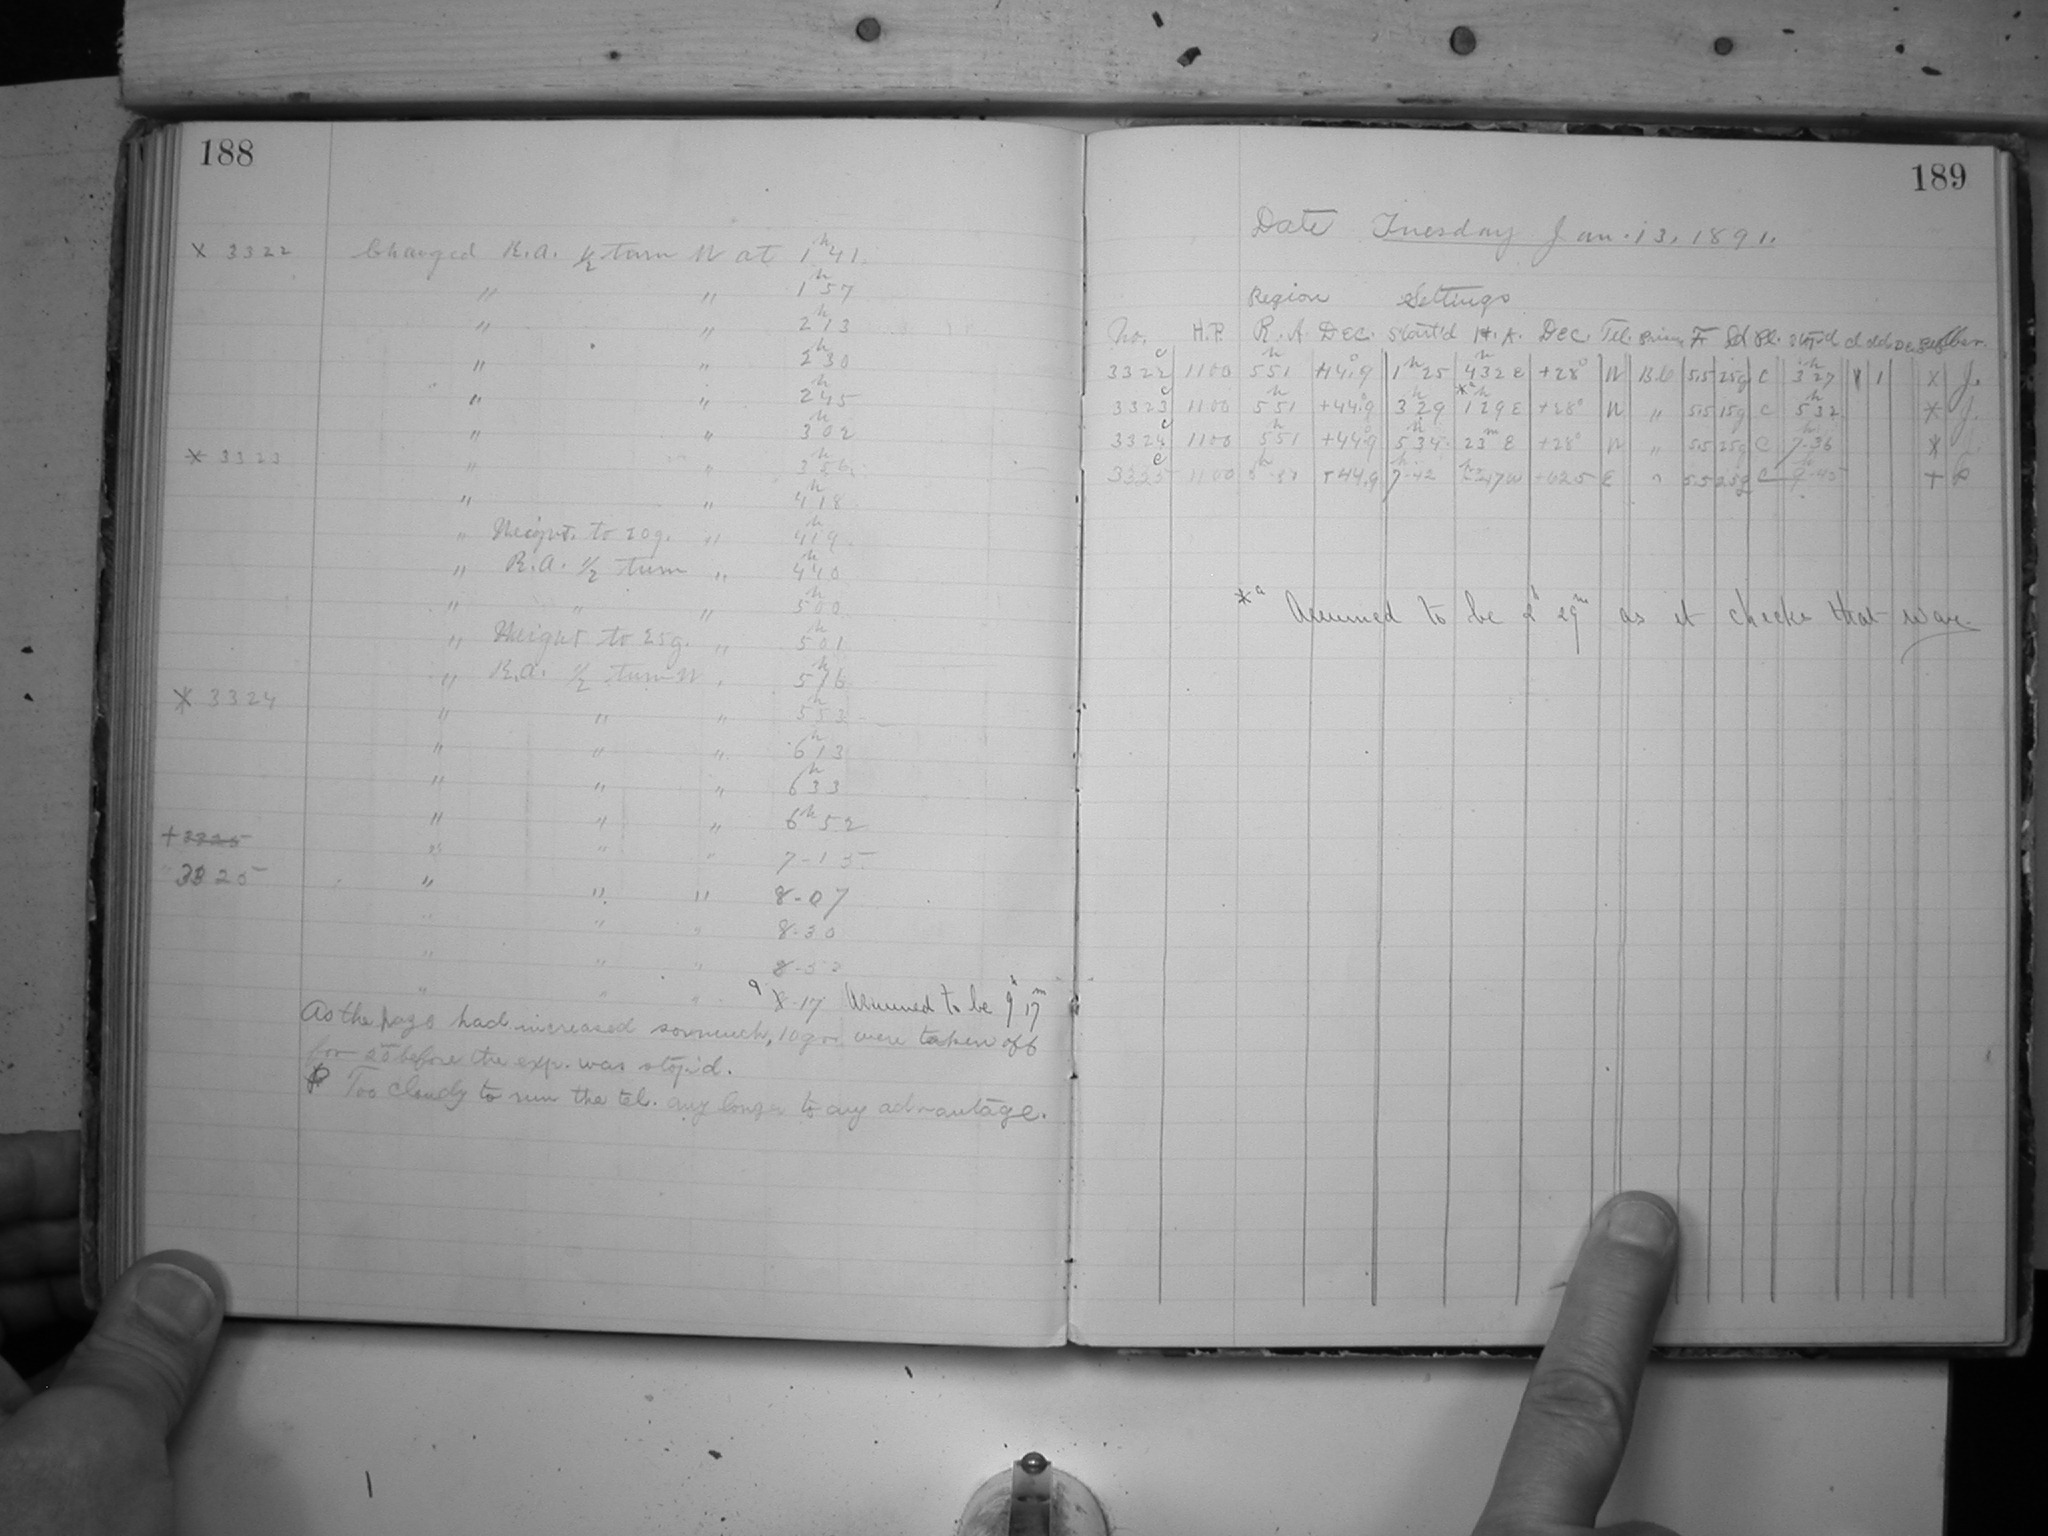 188
× 3322 Changed R.A. 1/2 turn W at 1h 41
" " 1h 57
" " 2h 13
" " 2h 30
" " 2h 45
" " 3h 02
× 3323 " " 3h 56
" " 4h 18
" Weight to 20g. " 4h 19
" R.A. 1/2 turn " 4h 40
" " " 5h 00
" Weight to 25g. " 5h 01
" R.A. 1/2 turn W " 5h 76
× 3324 " " " 5h 53
" " " 6h 13
" " " 6h 33
" " " 6h 52
+ 3325 " " " 7-15
3325 " " " 8-07
" " " 8-30
" " " 8-52
" " " a 8-17 Assumed to be 9h 17m
As the had increased so much, 10 grs were taken off
for 25 before the exp. was stop'd.
Too cloudy to run the tel. any longer to any advantage.
189
Date Tuesday Jan. 13, 1891.
Region Settings
No. H.P. R.A. Dec. Start'd H.A. Dec. Tel. Prism F Sd Pl. Stop'd Cl Obser.
3322 c 1100 5h 51 +44°.9 1h 25 4h 32 E +28° W B.C 55 25g C 3h 27 × 1 × J.
3323 c 1100 5h 51 +44°.9 3h 29 *a 1h 29 E +28° W " 55 15g C 5h 32 × J.
3324 c 1100 5h 51 +44°.9 5h 34 23m E +28° W " 55 25g C 7-36 × J.
3325 c 1100 5h-51 +44.9 7h-42 +62.5 E " 55 25g C 9-45 +
*a Assumed to be 2h 29m as it checks that way.